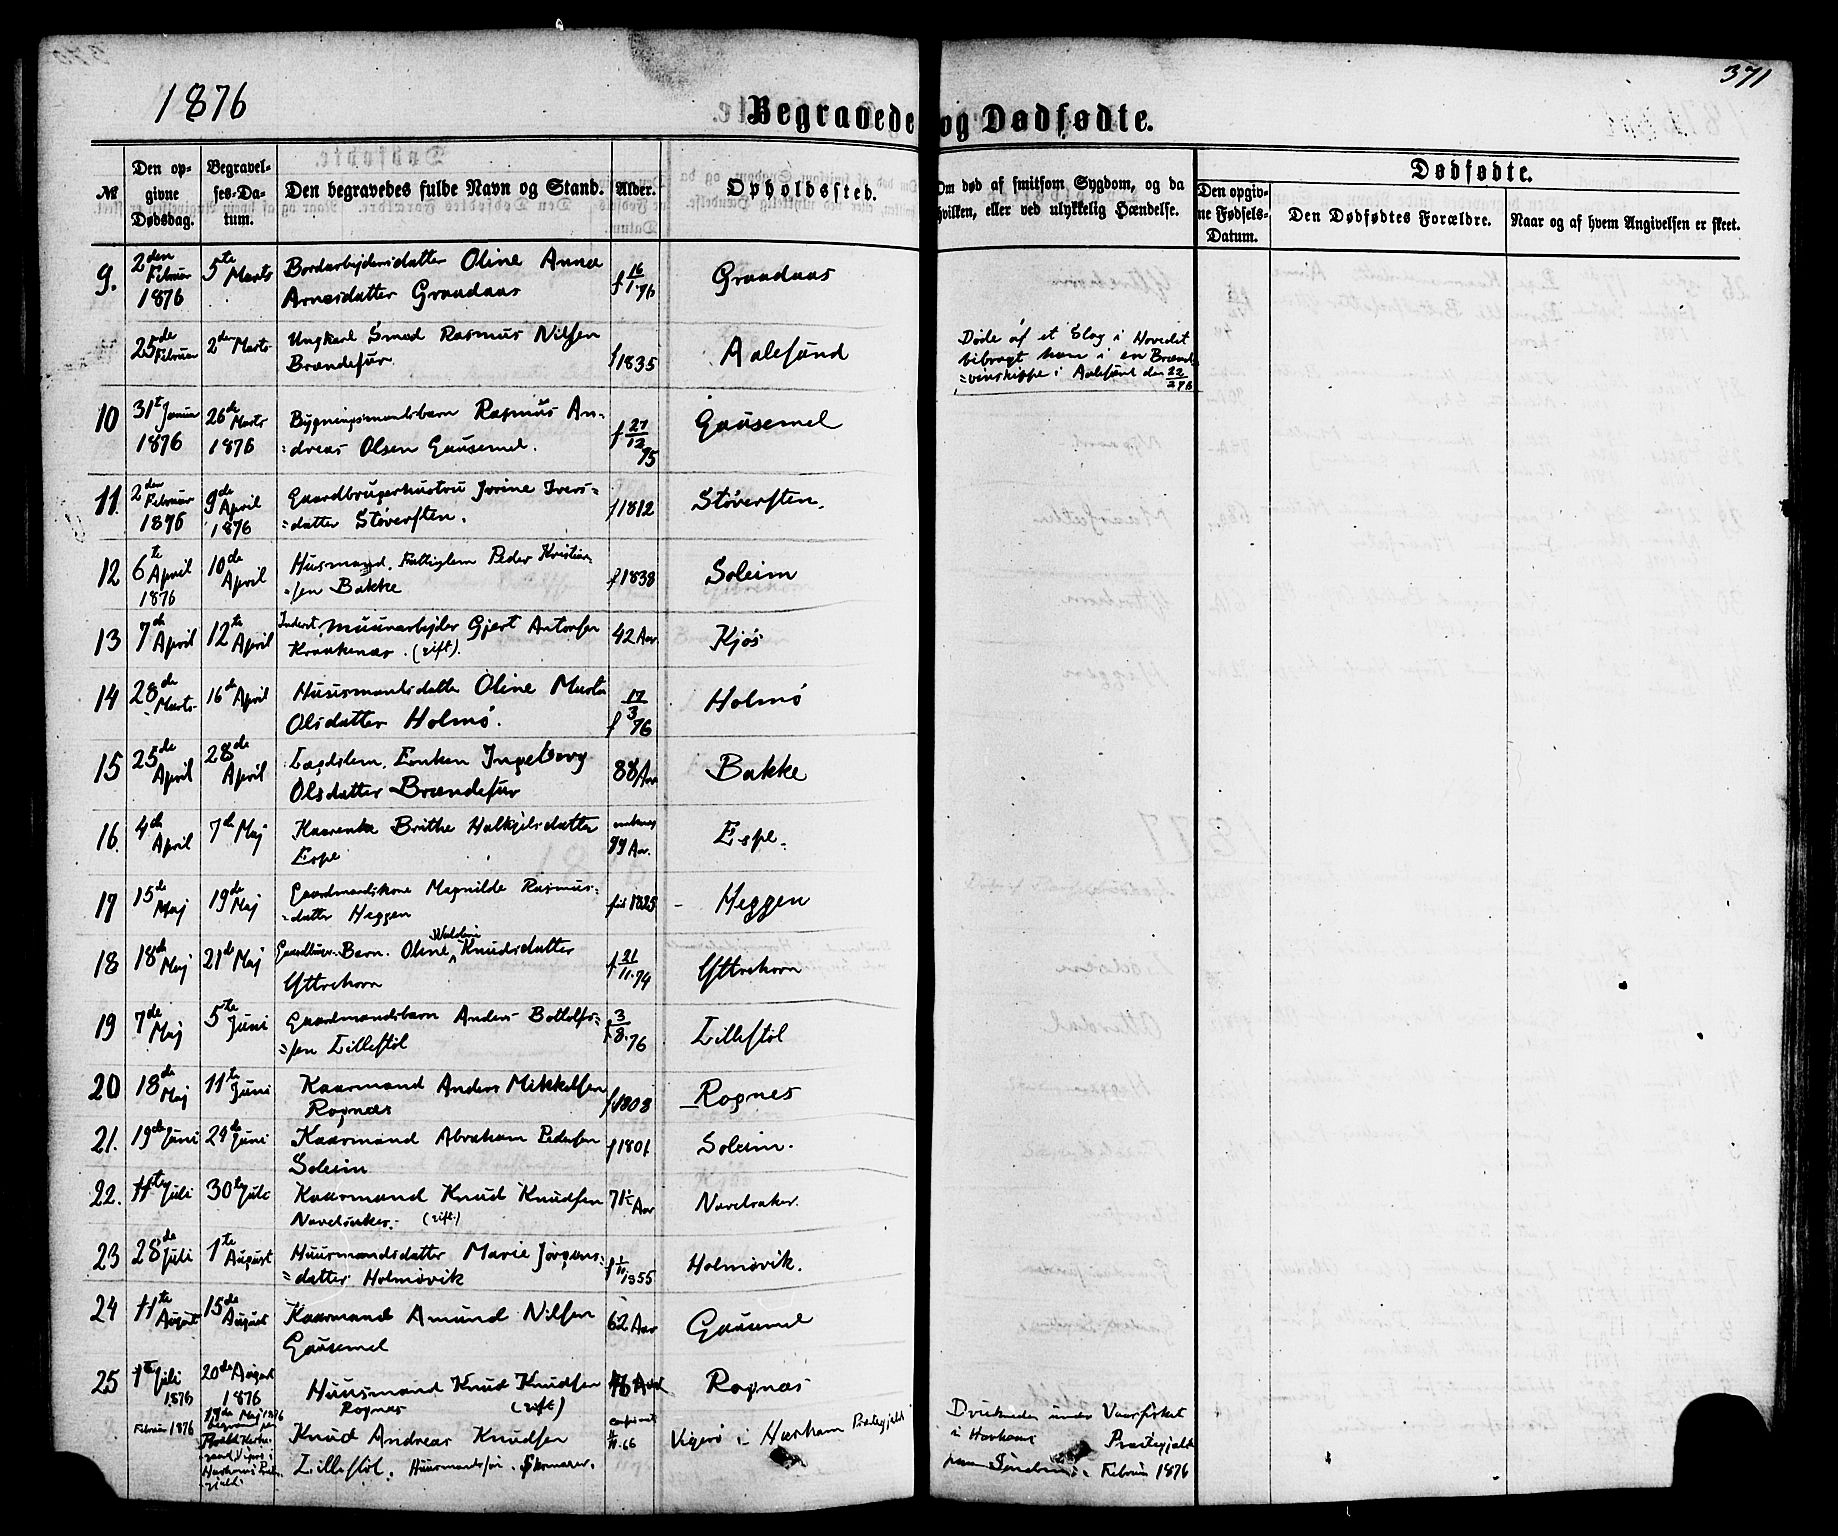 1876
371
Begravede og Dødfødte.
№
Den op-
givne
Dødsdag.
Begravel-
ses-Da-
tum.
Den begravedes fulde Navn og Stand.
Alder.
Opholdssted.
Om død af smitsom Sygdom, og da
hvilken, eller ved ulykkelig Hændelse.
Dødfødte.
Den opgiv-
ne Fødsels-
Datum.
Den Dødfødtes Forældre.
Naar og af hvem Angivelsen er skeet.
9. 2den Februar 1876 5te Marts Bordarbejdersdatter Oline Anna
Arnesdatter Graadaas f 16/1 76 Graadaas
25de Februar 2den Marts Ungkarl Smed Rasmus Nilsen
Brændefur f 1835 Aalesund
Døde af et Slag i Hovedet
bibragt ham i en Brænd
=vinskippe i Aalesund den 22/2 76
10 31te Januar 1876 26de Marts 1876 Bygningsmandsbarn Rasmus An=
=dreas Olsen Gausemel. f 27/12 75 Gausemel
11. 2den Februar 1876 9de April 1876 Gaardbrugerhustru Jorine Ivers=
=datter Støversten. f 1812 Støversten.
12 6te April 1876 10de April Husmand, Fattiglem Peder Kristian
=sen Bakke f 1838 Soleim
13 7de April 12te April Inderst Muurarbejder Gjert Antonsen
Kraakenæs. (gift). 42 Aar Kjøs
14 28de Marts 16de April Huusmandsdatter Oline Marta
Olsdatter Holmø. f 17/3 76 Holmø
15 25de April 28de April Lægdslem. Enken Ingeborg
Olsdatter Brændefur 88 Aar Bakke
16. 4de April 7de Maj Kaarenke Brithe Halkjelsdatter
Espe Aar. Espe.
17 15de Maj 19de Maj Gaardmandskone Magnilde Rasmus=
=datter Heggen 1825 Heggen
18 18de Maj 21de Maj Barn. Oline Knudsdatter
Yttrehorn f 21/11.74 Yttrehorn
19 7de Maj 5te Juni Gaardmandsbarn Anders Bottolfs=
=sen Lillestøl f 3/8.76 Lillestøl
20 18de Maj 11te Juni Kaarmand Anders Mikkelsen
Rognæs f 1808 Rognes
21. 19de Juni 24de Juni Kaarmand Abraham Pedersen
Soleim f 1801 Soleim.
22. 11te Juli 30te Juli Kaarmand Knud Knudsen
Navelsaker. (gift.) 71½ Aar Navelsaker.
23 28de Juli 1te August Huusmandsdatter Marie Jørgens=
=datter Holmøvik f 1/11 1855 Holmøvik.
24 11te August 15de August Kaarmand Amund Nilsen
Gausemel 62 Aar Gausemel
25 1te Juli 1876 20de August 1876 Huusmand Knud Knudsen
Rognæs (gift) Rognæs
Februar 1876 Maj 1876 Knud Andreas Knudsen
Lillestøl. Huusmandssøn. Vigerø i Harham Præstegjeld
Druknede under Vaarfisket
i Harhams Præstegjeld
paa Søndmør i Februar 1876